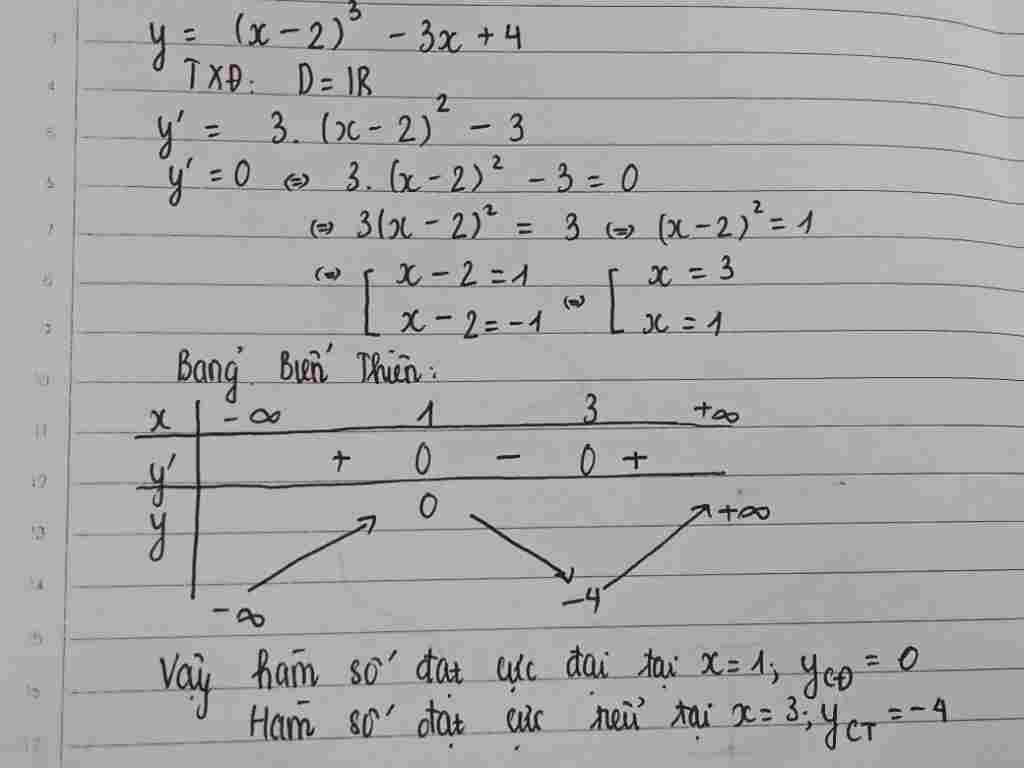 y = (x - 2)³ - 3x + 4
TXĐ: D = IR
y' = 3. (x - 2)² - 3
y' = 0 ⇔ 3. (x - 2)² - 3 = 0
⇔ 3(x - 2)² = 3 ⇔ (x - 2)² = 1
⇔ [ x - 2 = 1 ⇔ [ x = 3
x - 2 = -1 x = 1
Bảng Biến Thiên:
x -∞ 1 3 +∞
y' + 0 - 0 +
y 0 +∞
-∞ -4
Vậy hàm số đạt cực đại tại x = 1; yCĐ = 0
Hàm số đạt cực tiểu tại x = 3; yCT = -4